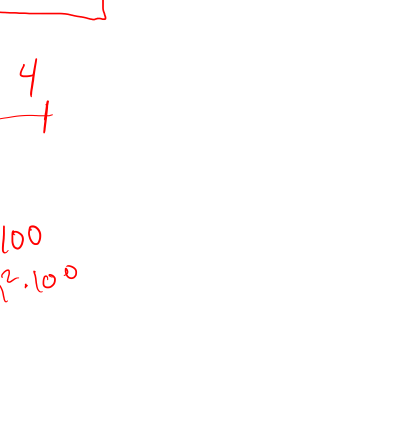 4
100
².100